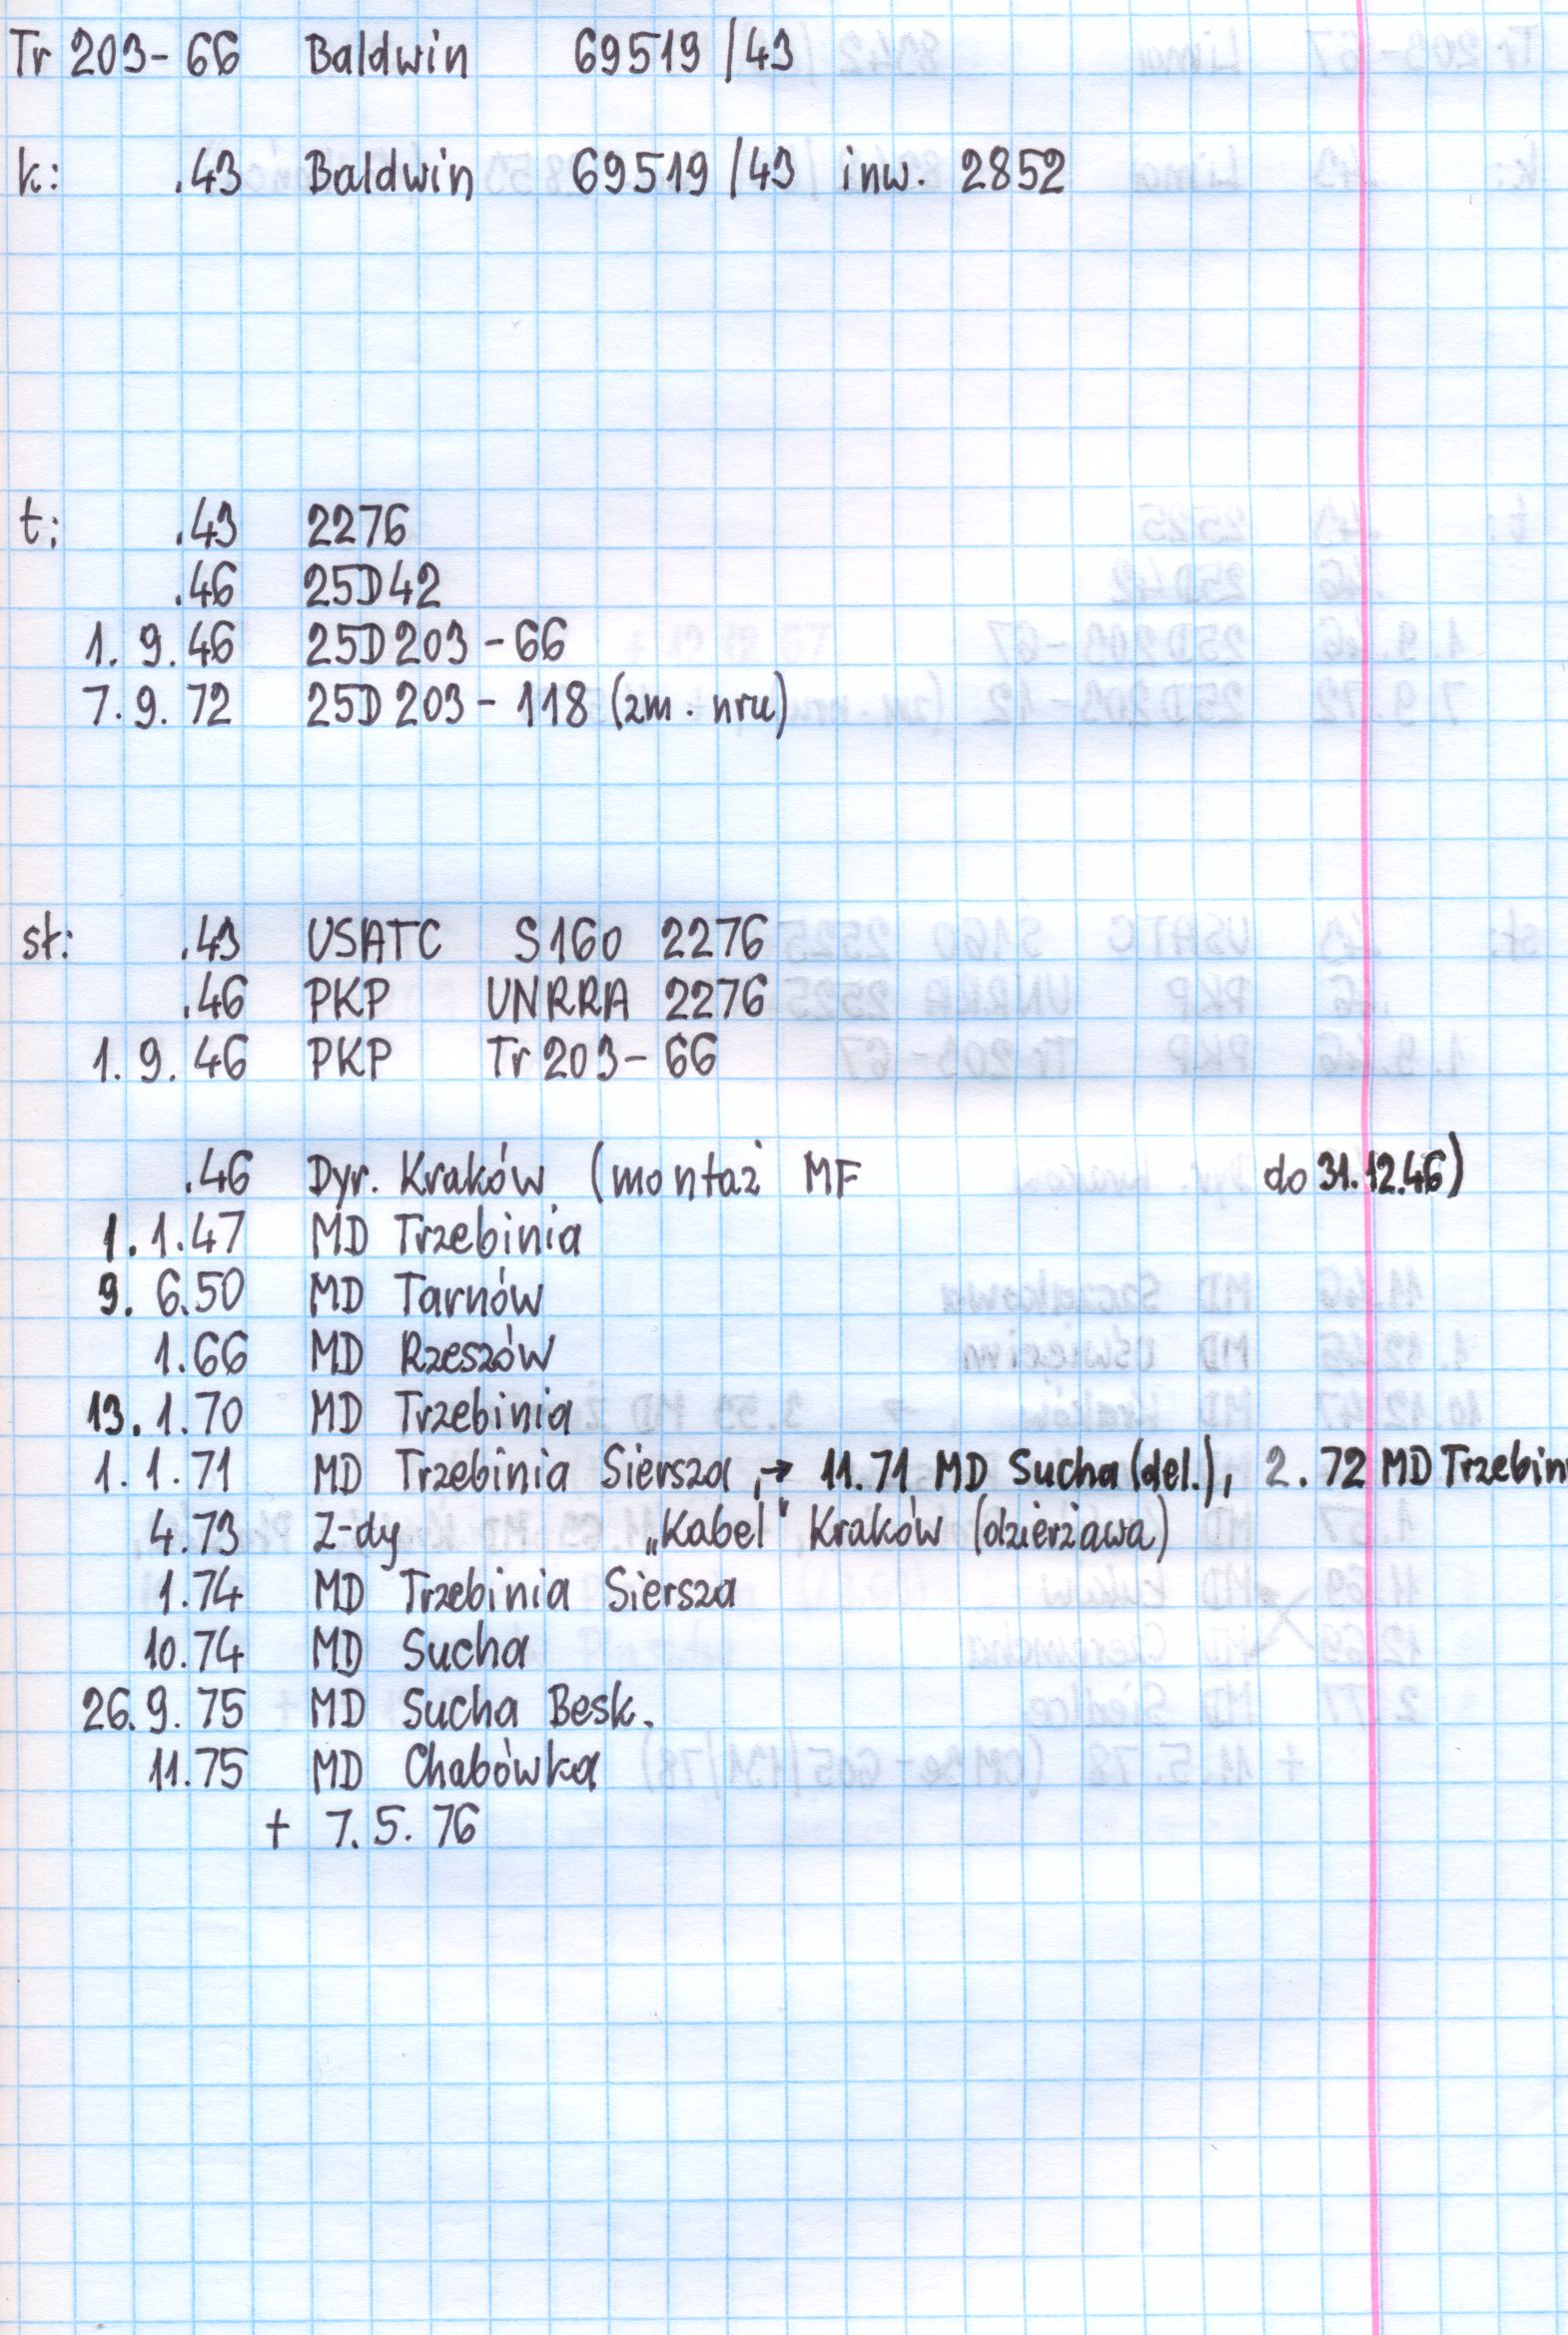 Tr 203-66 Baldwin 69519/43
k: .43 Baldwin 69519/43 inw. 2852
t: .43 2276
.46 25D42
1. 9.46 25D203-66
7.9.72 25D203-118 (zm. nru)
sł: .43 USATC S160 2276
.46 PKP UNRRA 2276
1.9.46 PKP Tr203-66
.46 Dyr. Kraków (montaż MF do 31.12.46)
1.1.47 MD Trzebinia
9. 6.50 MD Tarnów
1.66 MD Rzeszów
13.1.70 MD Trzebinia
1.1.71 MD Trzebinia Siersza, → 11.71 MD Sucha (del.), 2.72 MD Trzebin
4.73 Z-dy „Kabel" Kraków (dzierżawa)
1.74 MD Trzebinia Siersza
10.74 MD Sucha
26.9.75 MD Sucha Besk.
11.75 MD Chabówka
+ 7.5.76